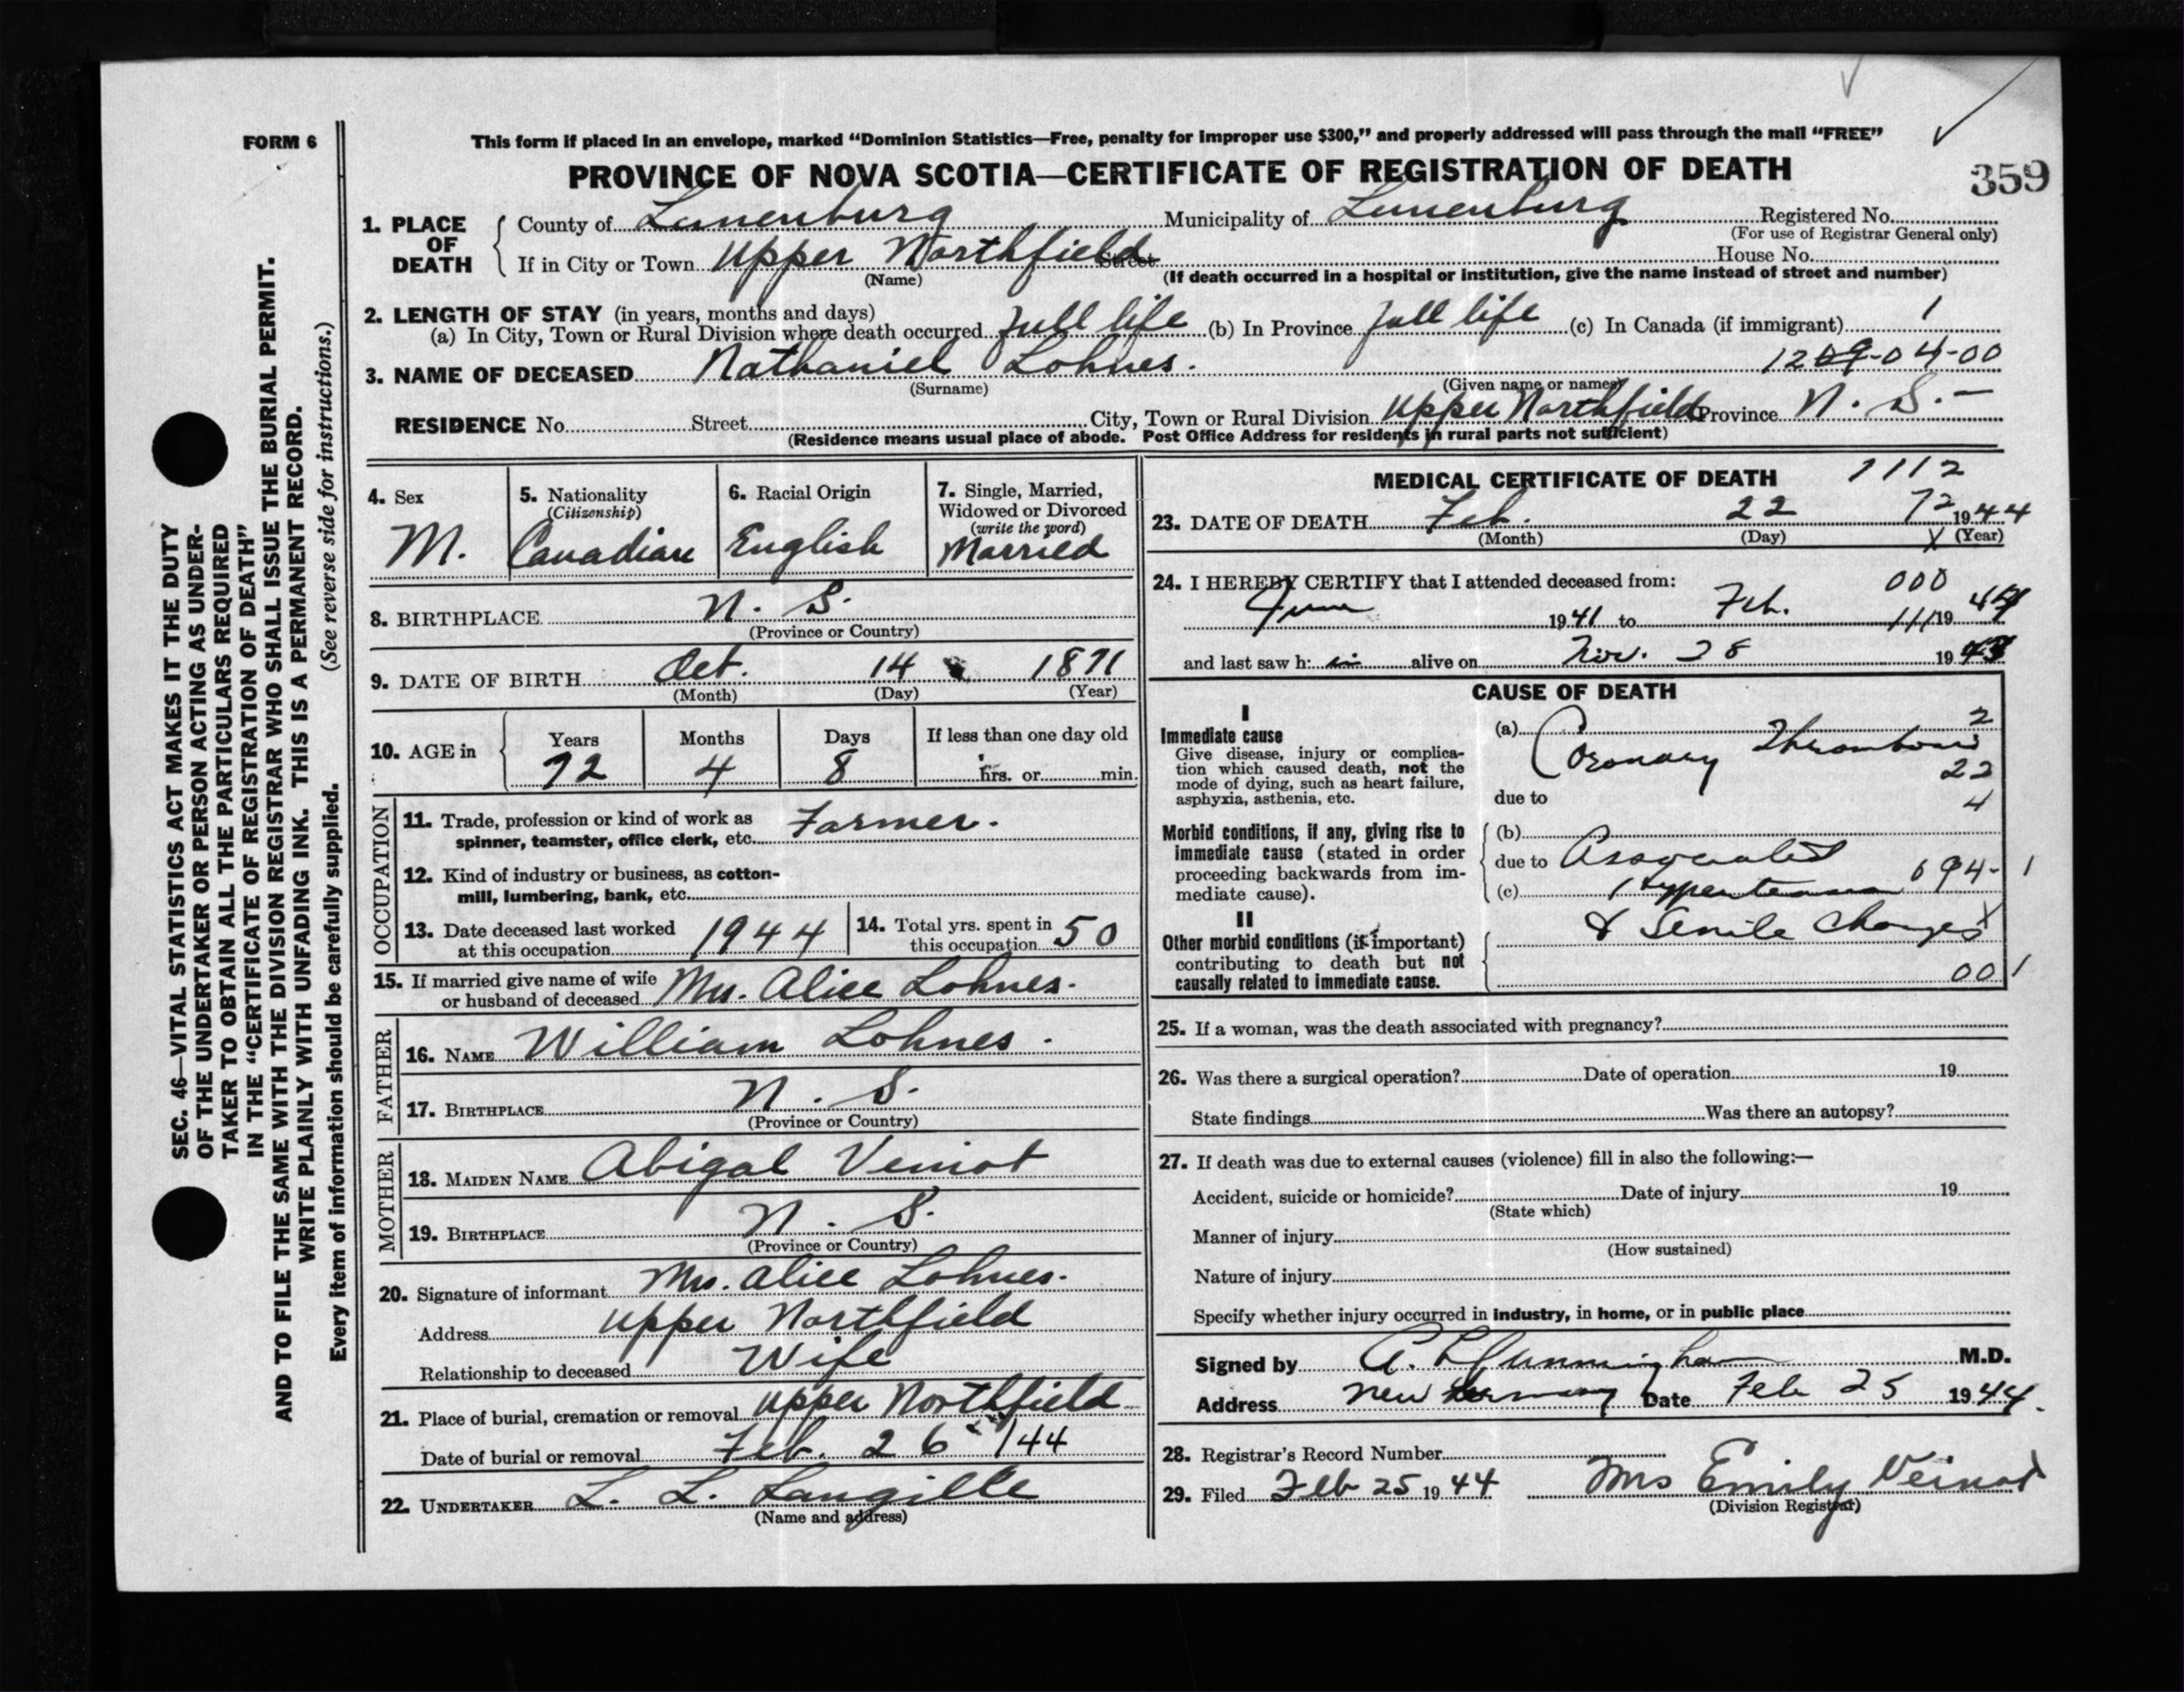 FORM 6
This form if placed in an envelope, marked “Dominion Statistics—Free, penalty for improper use $300,” and properly addressed will pass through the mail “FREE”
PROVINCE OF NOVA SCOTIA—CERTIFICATE OF REGISTRATION OF DEATH
359
1. PLACE OF DEATH
County of Lunenburg Municipality of Lunenburg Registered No.
(For use of Registrar General only)
If in City or Town Upper Northfield Street House No.
(Name) (If death occurred in a hospital or institution, give the name instead of street and number)
2. LENGTH OF STAY (in years, months and days)
(a) In City, Town or Rural Division where death occurred full life (b) In Province full life (c) In Canada (if immigrant) 1
1209-04-00
3. NAME OF DECEASED Nathaniel Lohnes.
(Surname) (Given name or names)
RESIDENCE No. Street City, Town or Rural Division Upper Northfield Province N. S. -
(Residence means usual place of abode. Post Office Address for residents in rural parts not sufficient)
4. Sex
M.
5. Nationality
(Citizenship)
Canadian
6. Racial Origin
English
7. Single, Married,
Widowed or Divorced
(write the word)
Married
8. BIRTHPLACE N. S.
(Province or Country)
9. DATE OF BIRTH Oct. 14 1871
(Month) (Day) (Year)
10. AGE in
Years Months Days If less than one day old
72 4 8 hrs. or min.
OCCUPATION
11. Trade, profession or kind of work as
spinner, teamster, office clerk, etc. Farmer.
12. Kind of industry or business, as cotton-
mill, lumbering, bank, etc.
13. Date deceased last worked
at this occupation 1944
14. Total yrs. spent in
this occupation 50
15. If married give name of wife
or husband of deceased Mrs. Alice Lohnes.
FATHER
16. NAME William Lohnes.
17. BIRTHPLACE N. S.
(Province or Country)
MOTHER
18. MAIDEN NAME Abigal Veniot
19. BIRTHPLACE N. S.
(Province or Country)
20. Signature of informant Mrs. Alice Lohnes.
Address Upper Northfield
Relationship to deceased Wife
21. Place of burial, cremation or removal Upper Northfield
Date of burial or removal Feb. 26 /44
22. UNDERTAKER L. L. Langille
(Name and address)
MEDICAL CERTIFICATE OF DEATH
1112
23. DATE OF DEATH Feb. 22 72 1944
(Month) (Day) X (Year)
24. I HEREBY CERTIFY that I attended deceased from: 000
June 1941 to Feb. 1944
and last saw h im alive on Nov. 28 1943
CAUSE OF DEATH
I
Immediate cause
Give disease, injury or complica-
tion which caused death, not the
mode of dying, such as heart failure,
asphyxia, asthenia, etc.
(a) Coronary Thrombosis
2
22
due to
4
Morbid conditions, if any, giving rise to
immediate cause (stated in order
proceeding backwards from im-
mediate cause).
(b)
due to Associated
(c) Hypertension 094- 1
II
Other morbid conditions (if important)
contributing to death but not
causally related to immediate cause.
& Senile Changes X
00 1
25. If a woman, was the death associated with pregnancy?
26. Was there a surgical operation? Date of operation 19
State findings Was there an autopsy?
27. If death was due to external causes (violence) fill in also the following:—
Accident, suicide or homicide? Date of injury 19
(State which)
Manner of injury
(How sustained)
Nature of injury
Specify whether injury occurred in industry, in home, or in public place
Signed by Cunningham M.D.
Address New Germany Date Feb 25 1944.
28. Registrar’s Record Number
29. Filed Feb 25 1944 Mrs Emily Veinot
(Division Registrar)
SEC. 46—VITAL STATISTICS ACT MAKES IT THE DUTY
OF THE UNDERTAKER OR PERSON ACTING AS UNDER-
TAKER TO OBTAIN ALL THE PARTICULARS REQUIRED
IN THE “CERTIFICATE OF REGISTRATION OF DEATH”
AND TO FILE THE SAME WITH THE DIVISION REGISTRAR WHO SHALL ISSUE THE BURIAL PERMIT.
WRITE PLAINLY WITH UNFADING INK. THIS IS A PERMANENT RECORD.
Every item of information should be carefully supplied. (See reverse side for instructions.)